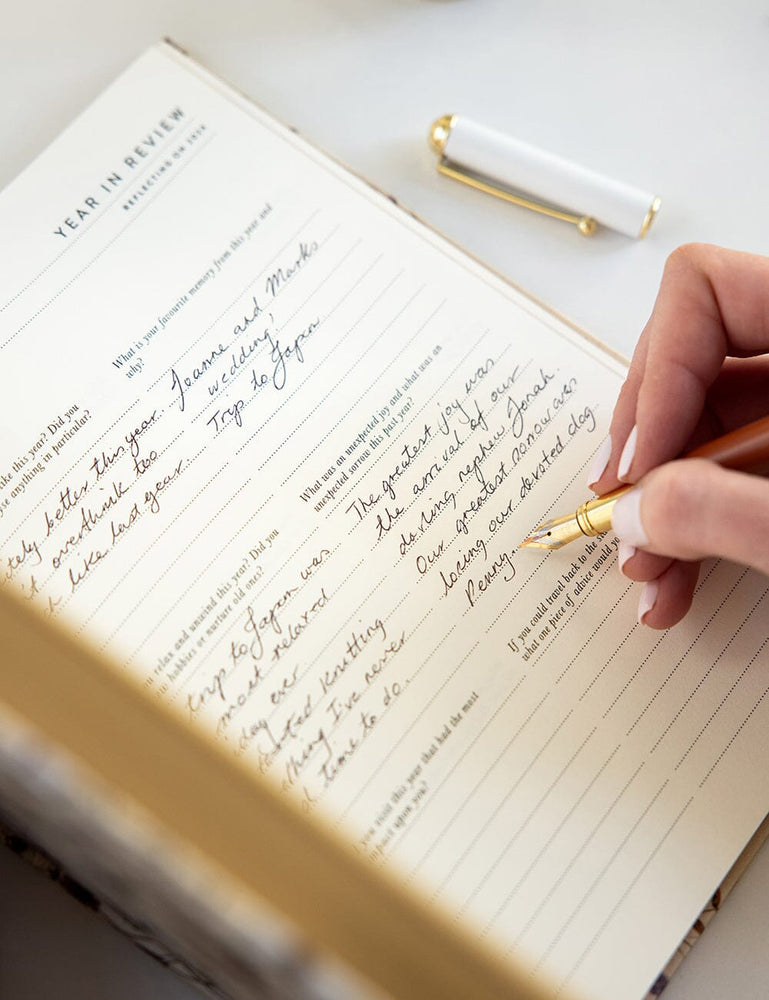 YEAR IN REVIEW
REFLECTING ON 2024
What is your favourite memory from this year and
why?
Joanne and Marks
wedding!
Trip to Japan
like this year? Did you
anything in particular?
better this year.
overthink too
like last year
What was an unexpected joy and what was an
unexpected sorrow this past year?
The greatest joy was
the arrival of our
darling nephew Jonah.
Our greatest sorrow was
losing our devoted dog
Penny.
relax and unwind this year? Did you
hobbies or nurture old ones?
trip to Japan was
most relaxed
day ever
started Knitting
thing I've never
time to do.
If you could travel back to the
what one piece of advice would
you visit this year that had the most
impact upon you?